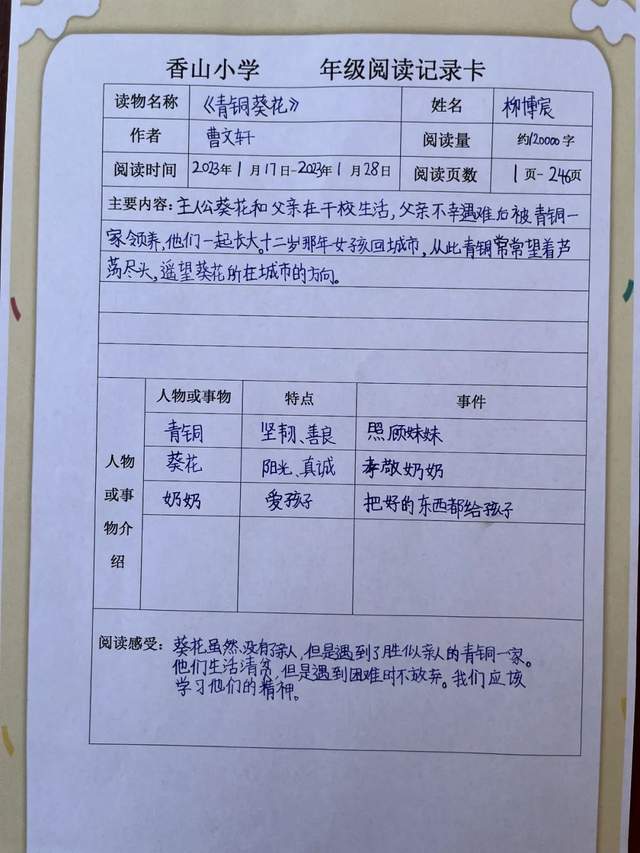 香山小学 年级阅读记录卡
读物名称 《青铜葵花》 姓名 柳博宸
作者 曹文轩 阅读量 约120000字
阅读时间 2023年1月17日-2023年1月28日 阅读页数 1页-246页
主要内容：主人公葵花和父亲在干校生活，父亲不幸遇难后被青铜一
家领养，他们一起长大。十二岁那年女孩回城市，从此青铜常常望着芦
荡尽头，遥望葵花所在城市的方向。
人物或事物 特点 事件
青铜 坚韧、善良 照顾妹妹
人物
葵花 阳光、真诚 孝敬奶奶
或事
奶奶 爱孩子 把好的东西都给孩子
物介
绍
阅读感受：葵花虽然没有了亲人，但是遇到了胜似亲人的青铜一家。
他们生活清贫，但是遇到困难时不放弃。我们应该
学习他们的精神。